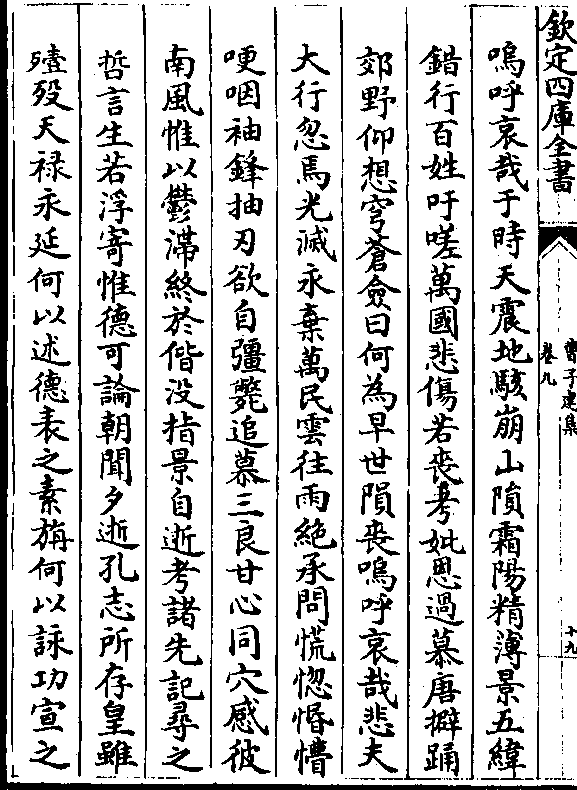 欽定四庫全書
曹子建集
卷九
十九
嗚呼哀哉于時天震地駭崩山隕霜陽精薄景五緯
錯行百姓吁嗟萬國悲傷若喪考妣恩過慕唐擗踊
郊野仰想穹蒼僉曰何為早世隕喪嗚呼哀哉悲夫
大行忽焉光滅永棄萬民雲往雨絶承問慌惚惛懵
哽咽袖鋒抽刃欲自彊斃追慕三良甘心同穴感彼
南風惟以鬱滯終於偕没指景自逝考諸先記尋之
哲言生若浮寄惟德可論朝聞夕逝孔志所存皇雖
殪殁天禄永延何以述德表之素旃何以詠功宣之